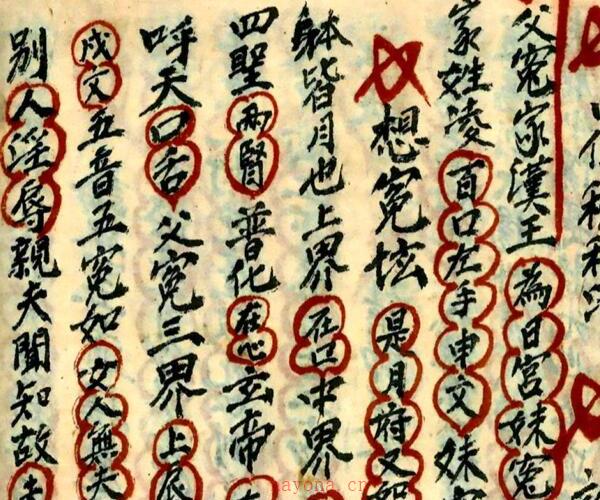 父寃家漢王為日宮妹寃
家姓凌百口左手申文妹
想寃坛是月府又
躰皆月也上界在口中界
四聖兩賢普化在心玄帝
呼天口舌父寃三界上
戍亥五音五寃如女人無夫
別人淫辱親夫聞知故
ayona.cn